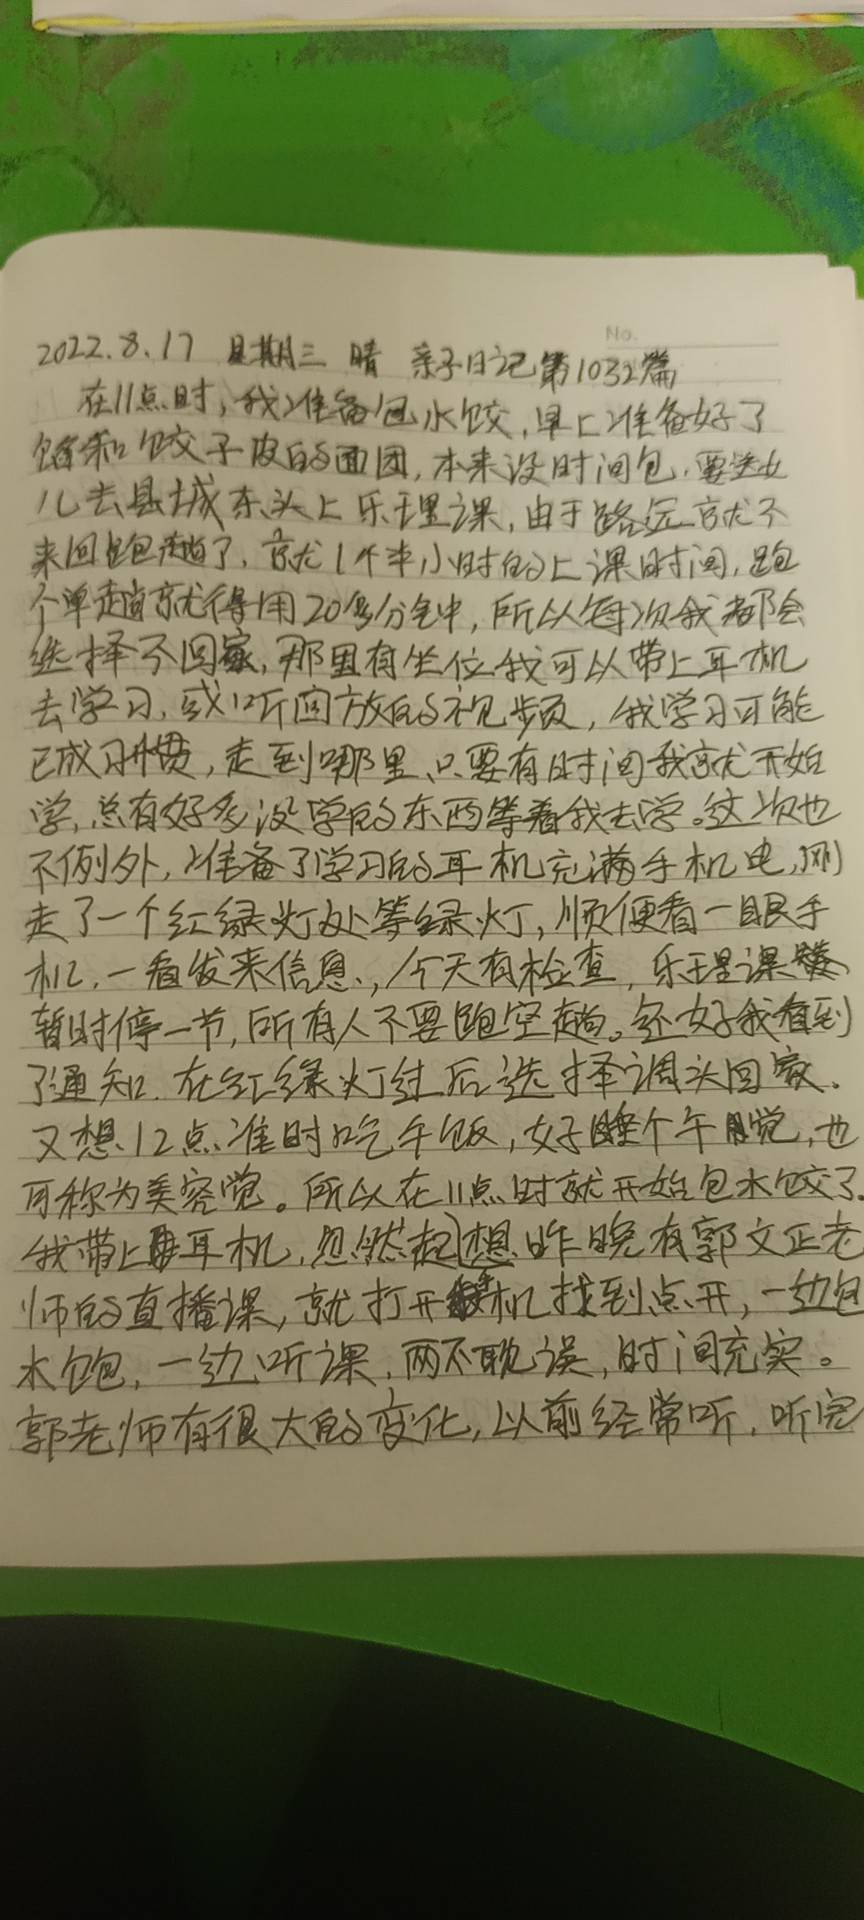 No.
2022.8.17 星期三 晴 亲子日记第1032篇
在11点时,我准备包水饺,早上准备好了
馅和饺子皮的面团,本来没时间包,要送女
儿去县城东头上乐理课,由于路远就不
来回跑趟了,就1个半小时的上课时间,跑
个单趟就得用20多分钟,所以每次我都会
选择不回家,那里有坐位我可以带上耳机
去学习,或听回放的视频,我学习可能
已成习惯,走到哪里、只要有时间我就开始
学,总有好多没学的东西等着我去学。这次也
不例外,准备了学习的耳机充满手机电,刚
走了一个红绿灯处等绿灯,顺便看一眼手
机,一看发来信息,今天有检查,乐理课
暂时停一节,所有人不要跑空趟。还好我看到
了通知,在红绿灯过后选择调头回家.
又想12点准时吃午饭,好睡个午觉,也
可称为美容觉。所以在11点时就开始包水饺了.
我带上耳机,忽然起想昨晚有郭文正老
师的直播课,就打开手机找到点开,一边包
水饱,一边听课,两不耽误,时间充实。
郭老师有很大的变化,以前经常听,听完